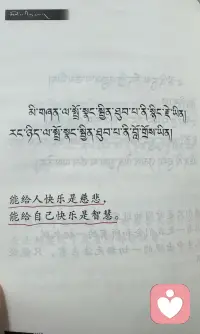 མི་གཞན་ལ་སྤྲོ་སྣང་སྦྱིན་ཐུབ་པ་ནི་སྙིང་རྗེ་ཡིན།
རང་ཉིད་ལ་སྤྲོ་སྣང་སྦྱིན་ཐུབ་པ་ནི་བློ་གྲོས་ཡིན།
能给人快乐是慈悲，
能给自己快乐是智慧。